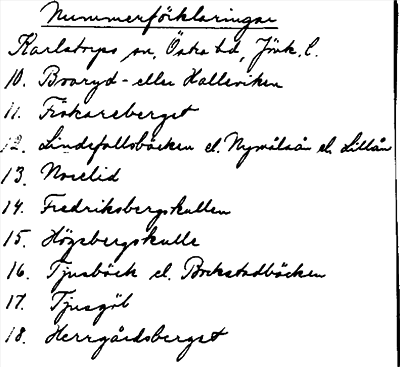 Nummerförklaringar
Karlstorps sn, Östra hd, Jönk. l.
10. Boaryd- eller Halleviken
11. Fiskareberget
12. Lindefallsbäcken el. Nymålaån el. Lillån
13. Noselid
14. Fredriksbergskullen
15. Högsbergskulle
16. Tjusbäck el. Bockstadbäcken
17. Tjusgöl
18. Herrgårdsberget